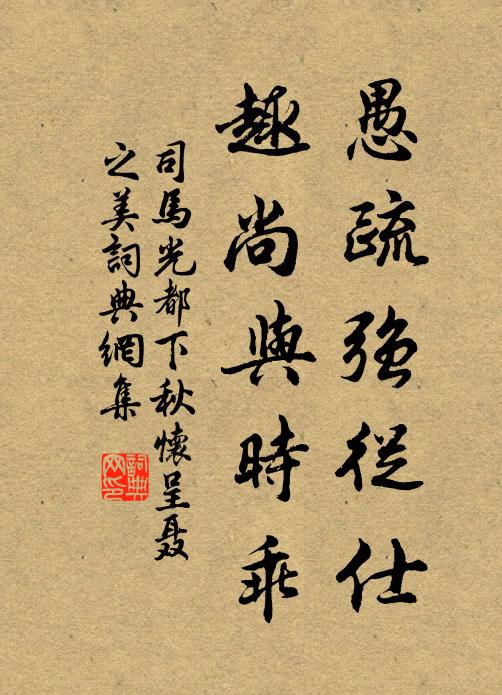 愚疏強從仕
趣尚與時乖
司馬光都下秋懷呈聂
之美詞典網集
詞典
网印